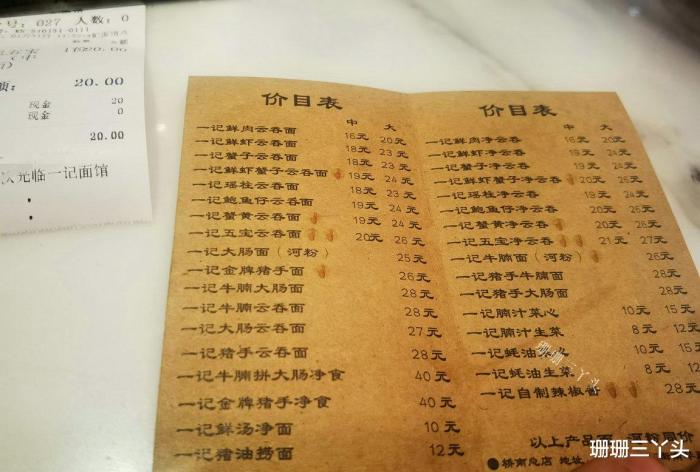 号: 027 人数: 0
20.00
现金 20
现金 0
20.00
光临一记面馆
价目表
中 大
一记鲜肉云吞面 16元 20元
一记鲜虾云吞面 18元 23元
一记蟹子云吞面 18元 23元
一记鲜虾蟹子云吞面 19元 24元
一记瑶柱云吞面 18元 23元
一记鲍鱼仔云吞面 19元 24元
一记蟹黄云吞面 19元 24元
一记五宝云吞面 20元 26元
一记大肠面（河粉） 25元
一记金牌猪手面 26元
一记牛腩大肠面 28元
一记牛腩云吞面 28元
一记大肠云吞面 27元
一记猪手云吞面 28元
一记牛腩拼大肠净食 40元
一记金牌猪手净食 40元
一记鲜汤净面 10元
一记猪油捞面 12元
价目表
中 大
一记鲜肉净云吞 16元 20元
一记鲜虾净云吞 19元 24元
一记蟹子净云吞 19元 24元
一记鲜虾蟹子净云吞 20元
一记瑶柱净云吞 19元 24元
一记鲍鱼仔净云吞 20元 26元
一记蟹黄净云吞 20元 26元
一记五宝净云吞 21元 27元
一记牛腩面（河粉） 26元
一记猪手牛腩面 28元
一记猪手大肠面 28元
一记腩汁菜心 10元 15
一记腩汁生菜 8元 12
一记蚝油 10元 15
一记蚝油生菜 8元 12
一记自制辣椒酱 28
以上产品
桥南总店 地址
珊珊三丫头
珊珊三丫头